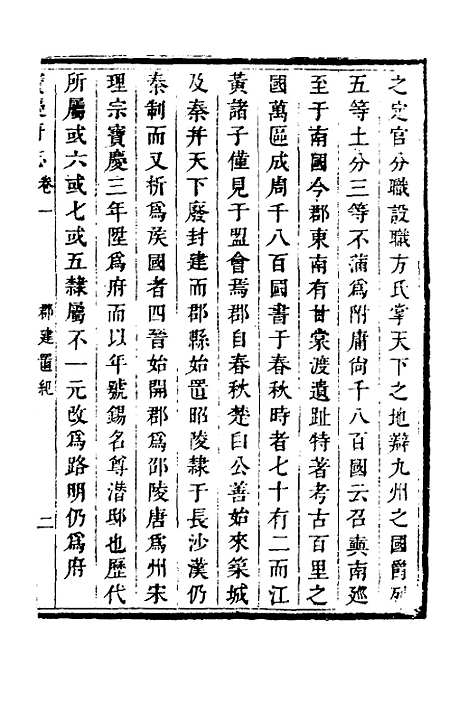 之定官分職設職方氏掌天下之地辯九州之國爵列
五等土分三等不蒲爲附庸尙千八百國云召奭南廵
至于南國今郡東南有甘棠渡遺趾特著考古百里之
國萬區成周千八百國書于春秋時者七十有二而江
黃諸子僅見于盟會焉郡自春秋楚白公善始來築城
及秦并天下廢封建而郡縣始置昭陵隷于長沙漢仍
秦制而又析爲矦國者四晉始開郡爲邵陵唐爲州宋
理宗寶慶三年陞爲府而以年號錫名尊潛邸也歷代
所屬或六或七或五隷屬不一元改爲路明仍爲府
寶慶府志卷一
郡建置紀
二